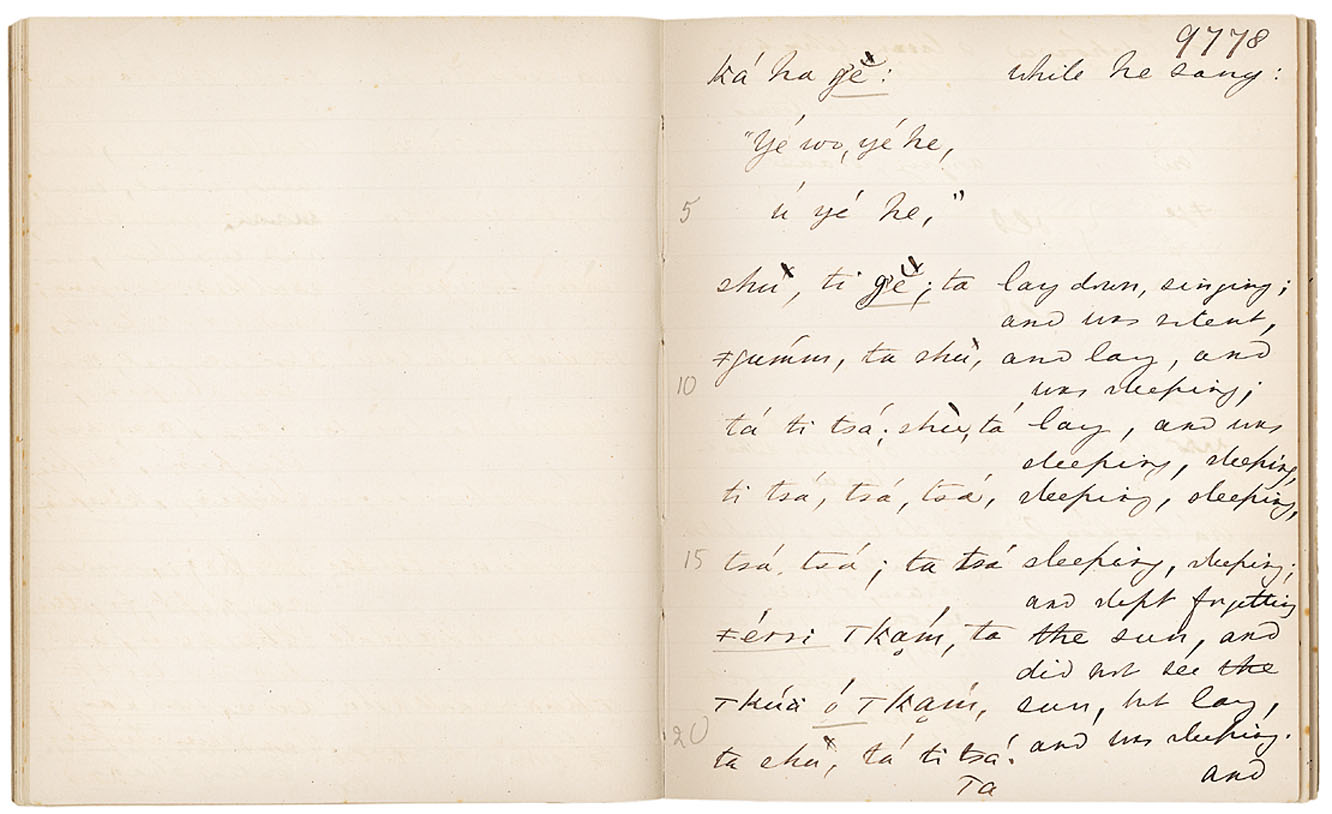 9778
ká ha gĕ: while he sang:
"Yé wo, yé he,
5 ú yé he,"
shù, ti gĕ; ta lay down, singing;
and was silent,
ǂgumḿ, ta shù, and lay, and
10 was sleeping;
tá ti tsá; shù, tá lay, and was
sleeping, sleeping,
ti tsá, tsá, tsá, sleeping, sleeping,
15 tsá, tsá; ta tsá sleeping, sleeping;
and slept forgetting
ǂérri ꞱKą́m, ta the sun, and
did not see the
sun, but lay,
20 and was sleeping.
ta shù, tá ti tsá.
Ta and